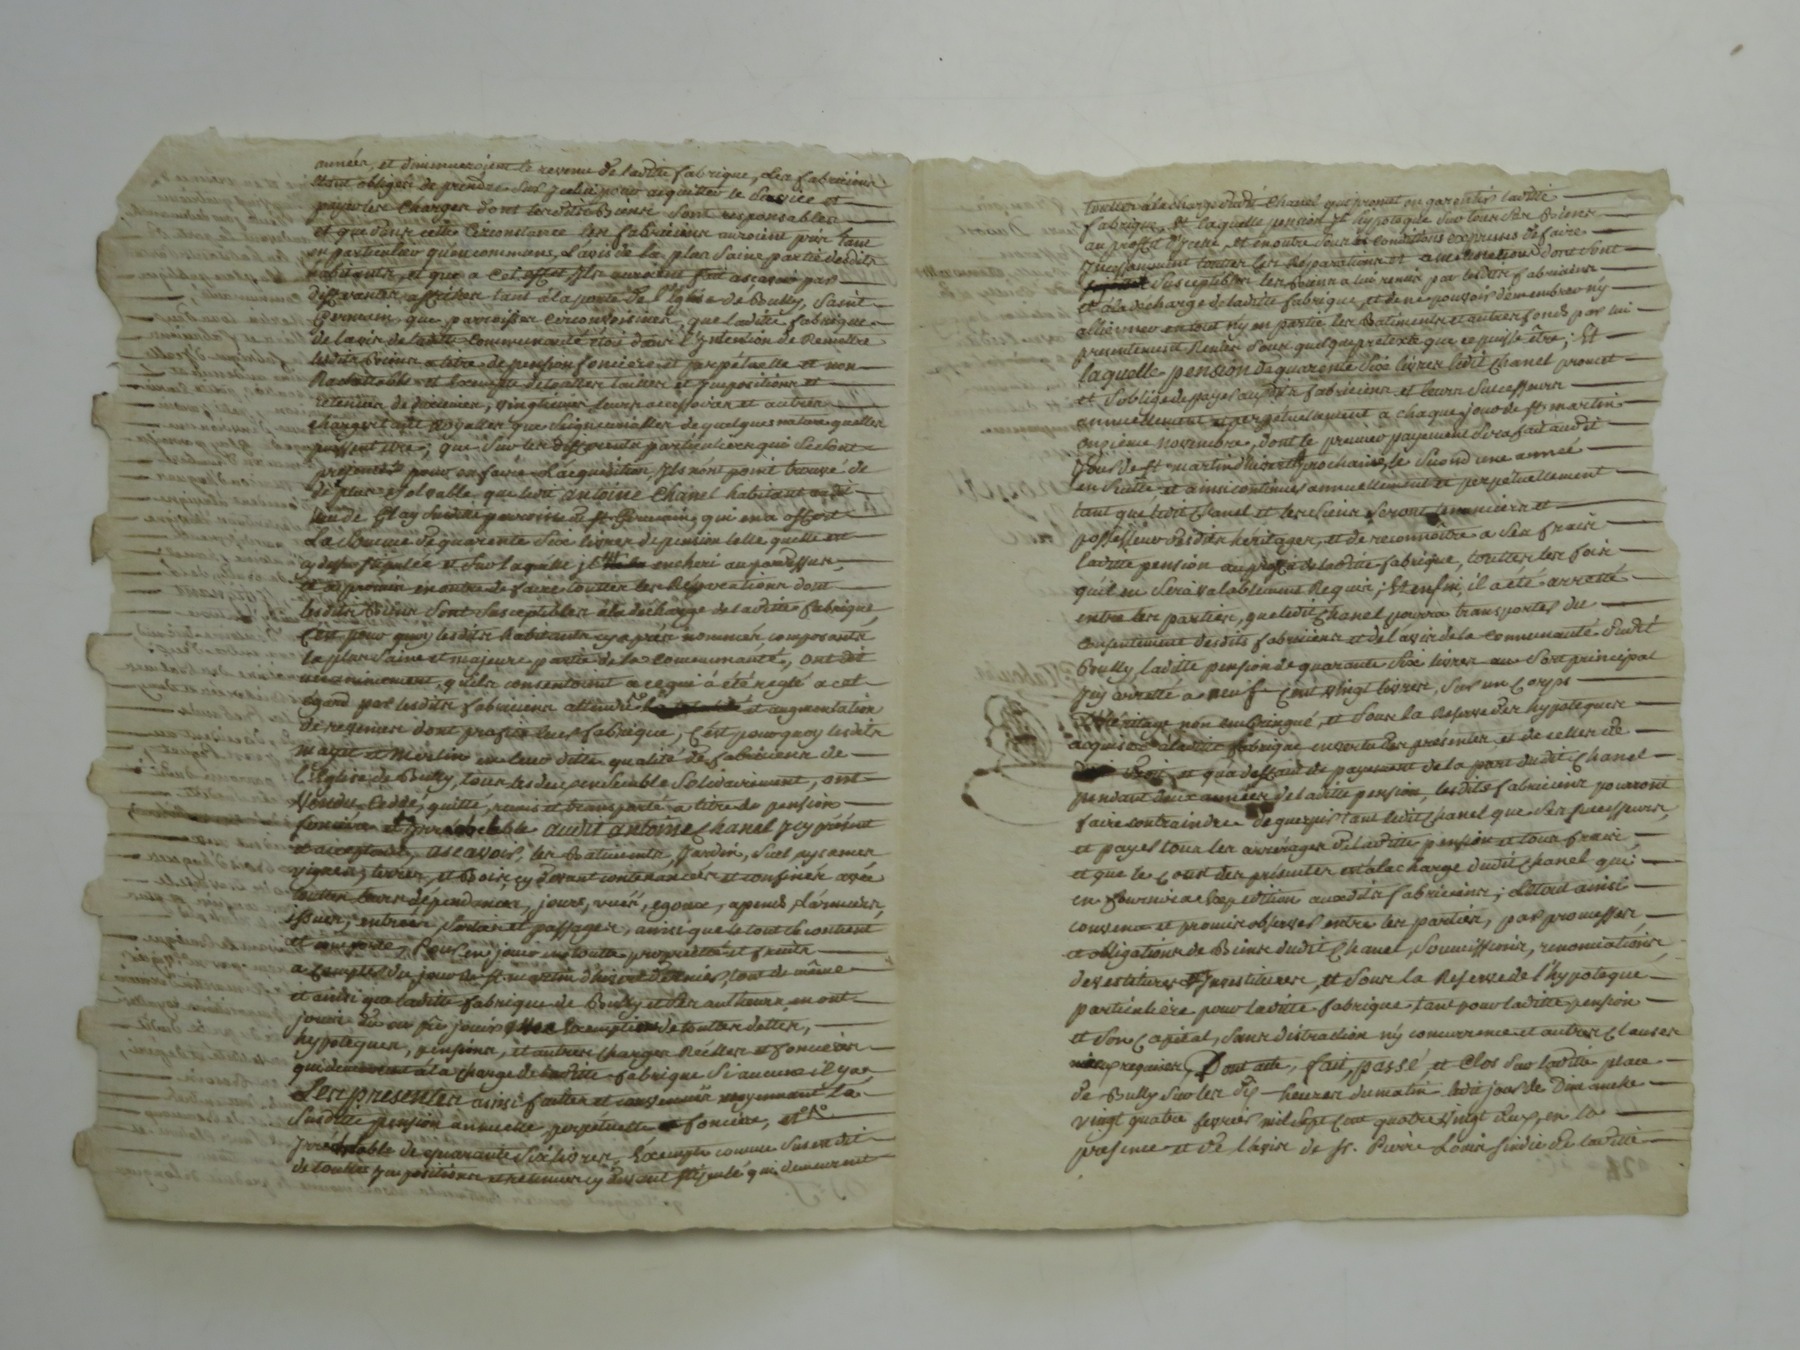 années, et diminueroient le revenu de laditte fabrique, Les fabriciens
étant obligés de prendre sur pour acquitter le Service et
payer les Charges dont lesdits Biens sont responsables
et que dans cette Circonstance les fabriciens auroient pris tant
en particulier qu'en commun, L'avis de la plus Saine partie desdits
habitants, et que a Cet effet ils auroient fait ascavoir par
differantes affiches tant à la porte de l'Eglise de Boully, Saint
Germain que parroisses Circonvoisines, que laditte fabrique
de lavis de laditte Communauté étoit dans l'Intention de Remettre
lesdits Biens a titre de pension fonciere et perpétuelle et non
Rachettable et Exempte de touttes tailles et Impositions et
retenues de dixiemes, vingtiemes leurs accessoires et autres
charges tant Royalles que Seigneurialles de quelques nature quelles
puissent etre; que Sur les differents particuliers qui Se Sont
présentés pour en faire L'acquisition, Ils nont point trouvé de
de plus Solvable que ledit antoine Chanel habitant audit
lieu de Glay Suivitte parroisse de St. Germain, qui en a offert
La Somme de quarente Six livres de pension telle quelle est
cy dessus Stipulée et Sur laquelle encheri au pardessus,
et de promis en outre de faire touttes les Réparations dont
lesdits Biens Sont Susceptibles a la decharge de laditte fabrique,
C'est pour quoy lesdits habitants cy après nommés composants
la plus Saine et majeure partie de la Communauté, ont dit
unanimement, quils consentoient a ce qui a été reglé a cet
égard par lesdits fabriciens attendu et augmentation
de revenus dont profite leur fabrique, C'est pourquoy lesdits
et Merlin en leur ditte qualité de fabriciens de
l'Eglise de Boully, tous les deux ensemble Solidairement, ont
Vendu, Cedde, quitté, remis et transporté a titre de pension
fonciere et audit antoine Chanel Icy présent
et acceptant, ascavoir, les Batiments, Jardin,
vignes, terres, et Bois cy devant contenancés et confinés avec
touttes leurs dépendances, jours, vues, egoux, apends, Larmiers,
issues, entrées, Sorties et passages, ainsi que le tout Se contient
et comporte, Pour en jouir en toutte proprietté et fruits
a Compter du jour de St. martin d'hiver dernier, tout de même
et ainsi que laditte fabrique de Boully et Ses autheurs en ont
jouir du ou pu jouir avec Exemption de touttes dettes,
hypoteques, pensions, et autres charges Réelles et foncieres
qui demeurent a la charge de laditte fabrique Si aucunes il y a,
Les presentes ainsi faittes et convenües moyennant La
Susditte pension annuelle, perpétuelle et fonciere, et
de quarante Six livres, Exempte comme Sus est dit
de touttes Impositions et retenues cy devant Stipulé qui demeurent
touttes à la charge dudit Chanel qui promet en garantir laditte
fabrique, Et laquelle pension Et hypoteque Sur tous Ses Biens
au proffit d'Icelle, et en outre Sous les Conditions expresses de faire
Incessamment touttes les Réparations et ameliorations dont Sont
Susceptibles les Biens a lui remis par lesdits fabriciens
et à la decharge de laditte fabrique, et de ne pouvoir demembrer ny
allienner en tout n'y en partie les Batiments et autres fonds par lui
presentement Remis Sous quelque pretexte que ce puisse être; Et
laquelle pension de quarente Six livres ledit Chanel promet
et S'oblige de payer auxdits fabriciens et leurs Successeurs
annuellement et perpetuellement a chaque jour de St martin
onzieme Novembre, dont le premier payement Sera fait audit
Jour de St martin d'hiver prochain, le Second une année
en Suitte et ainsi continuer annuellement et perpetuellement
tant que ledit Chanel et les Siens Seront tenanciers et
possesseurs desdits héritages, et de reconnoître a Ses frais
laditte pension au profit de laditte fabrique, touttes les fois
qu'il en Sera valablement Requis; Et enfin, il a été arretté
entre les parties, que ledit Chanel pourra transporter du
consentement desdits fabriciens et de l'avis de la Communauté dudit
Boully, laditte pension de quarante Six livres au Sort principal
Icy arretté a neuf Cent vingt livres, Sur un Corps
d'héritage non embringué, et Sous la Reserve des hypoteques
acquises a laditte fabrique en vertu des présentes, et de celles de
Droit, et qu'a deffaut de payement de la part dudit Chanel
pendant deux années de laditte pension, lesdits fabriciens pourront
faire contraindre deguerpir tant ledit Chanel que Ses Successeurs,
et payer tous les arrerages de laditte pension et tous frais
et que le Cout des présentes est à la charge dudit Chanel qui
en fournira Expedition auxdits fabriciens; Létout ainsi
convenu et promis observer entre les parties, par promesses
et obligations de Biens dudit Chanel, Soumissions, renonciations,
devestitures et Investitures, et Sous la Reserve de l'hypoteque
particuliere pour laditte fabrique tant pour laditte pension
et Son Capital, Sans distraction ny concurrence et autres Clauses
requises, Dont acte, fait, passé, et Clos Sur laditte place
de Boully Sur les dix heures du matin ledit jour de Dimanche
vingt quatre fevrier mil Sept Cent quatre vingt deux, en la
presence et de l'avis de Sr. Pierre Louis Sindic de laditte